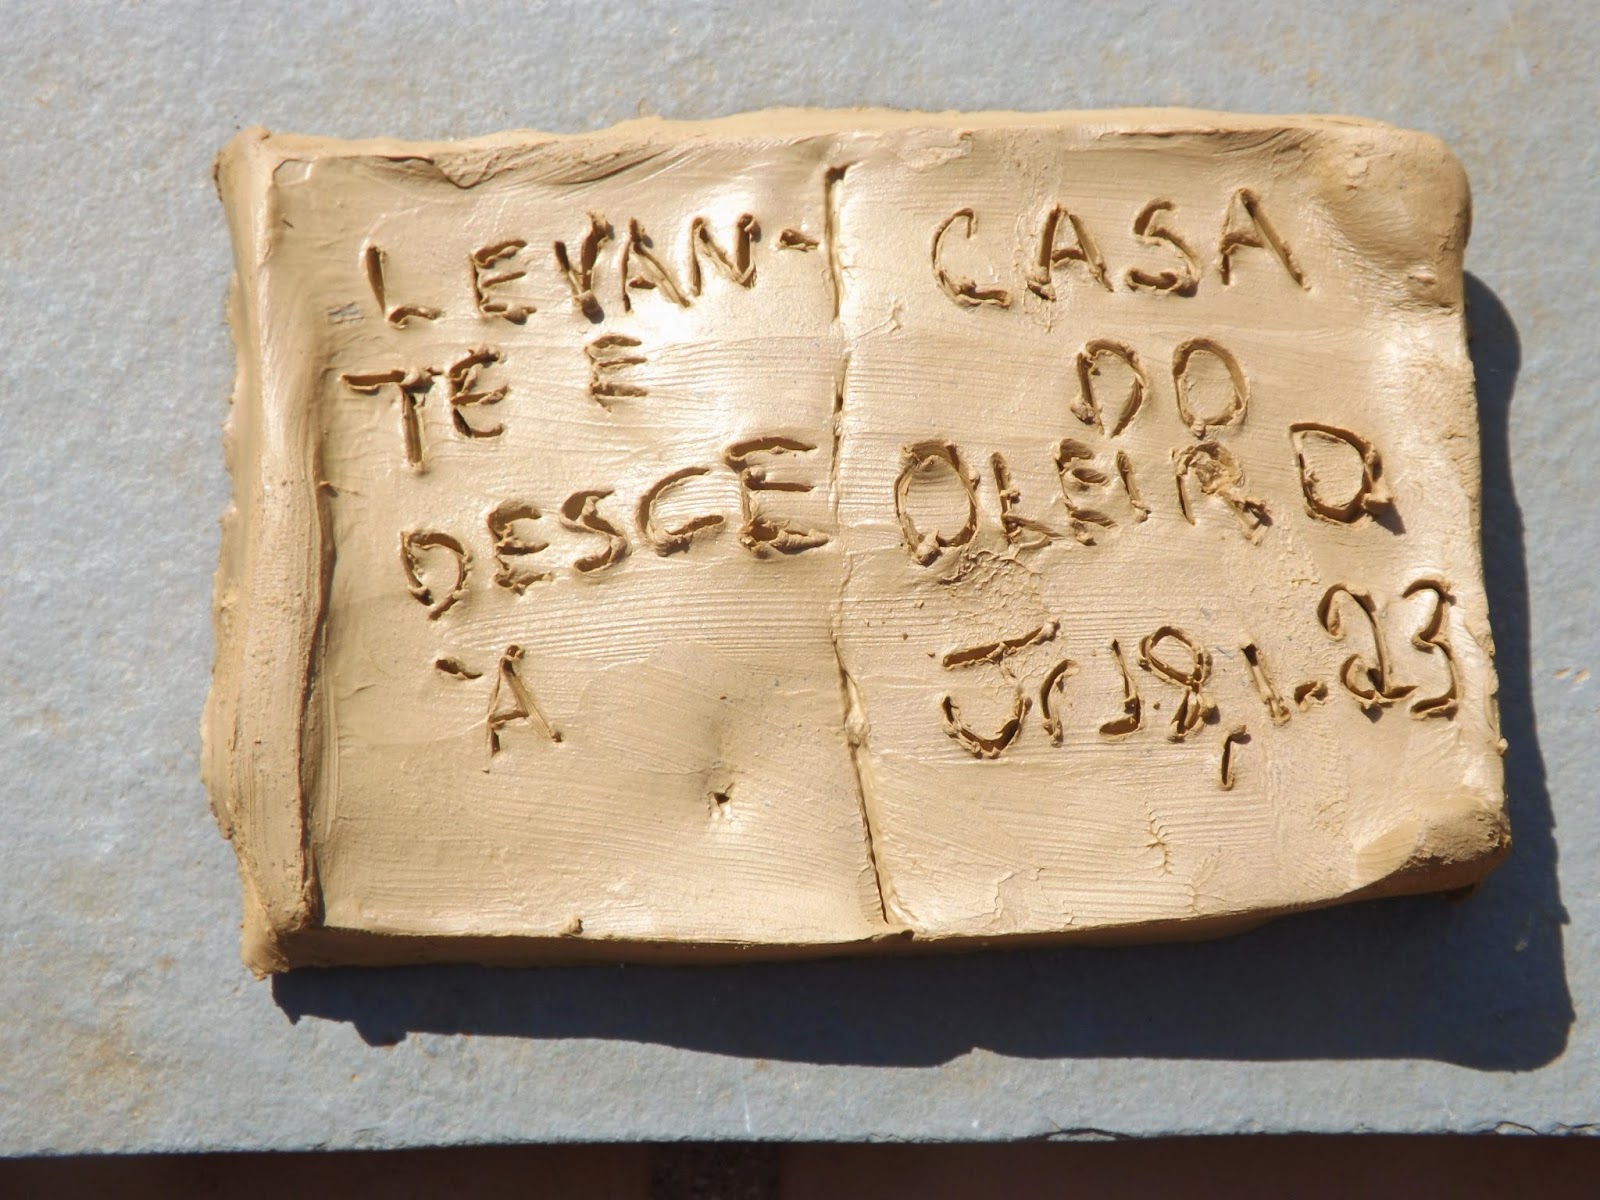 LEVAN-
TE E
DESCE
À
CASA
DO
OLEIRO
Jr 18,1-23